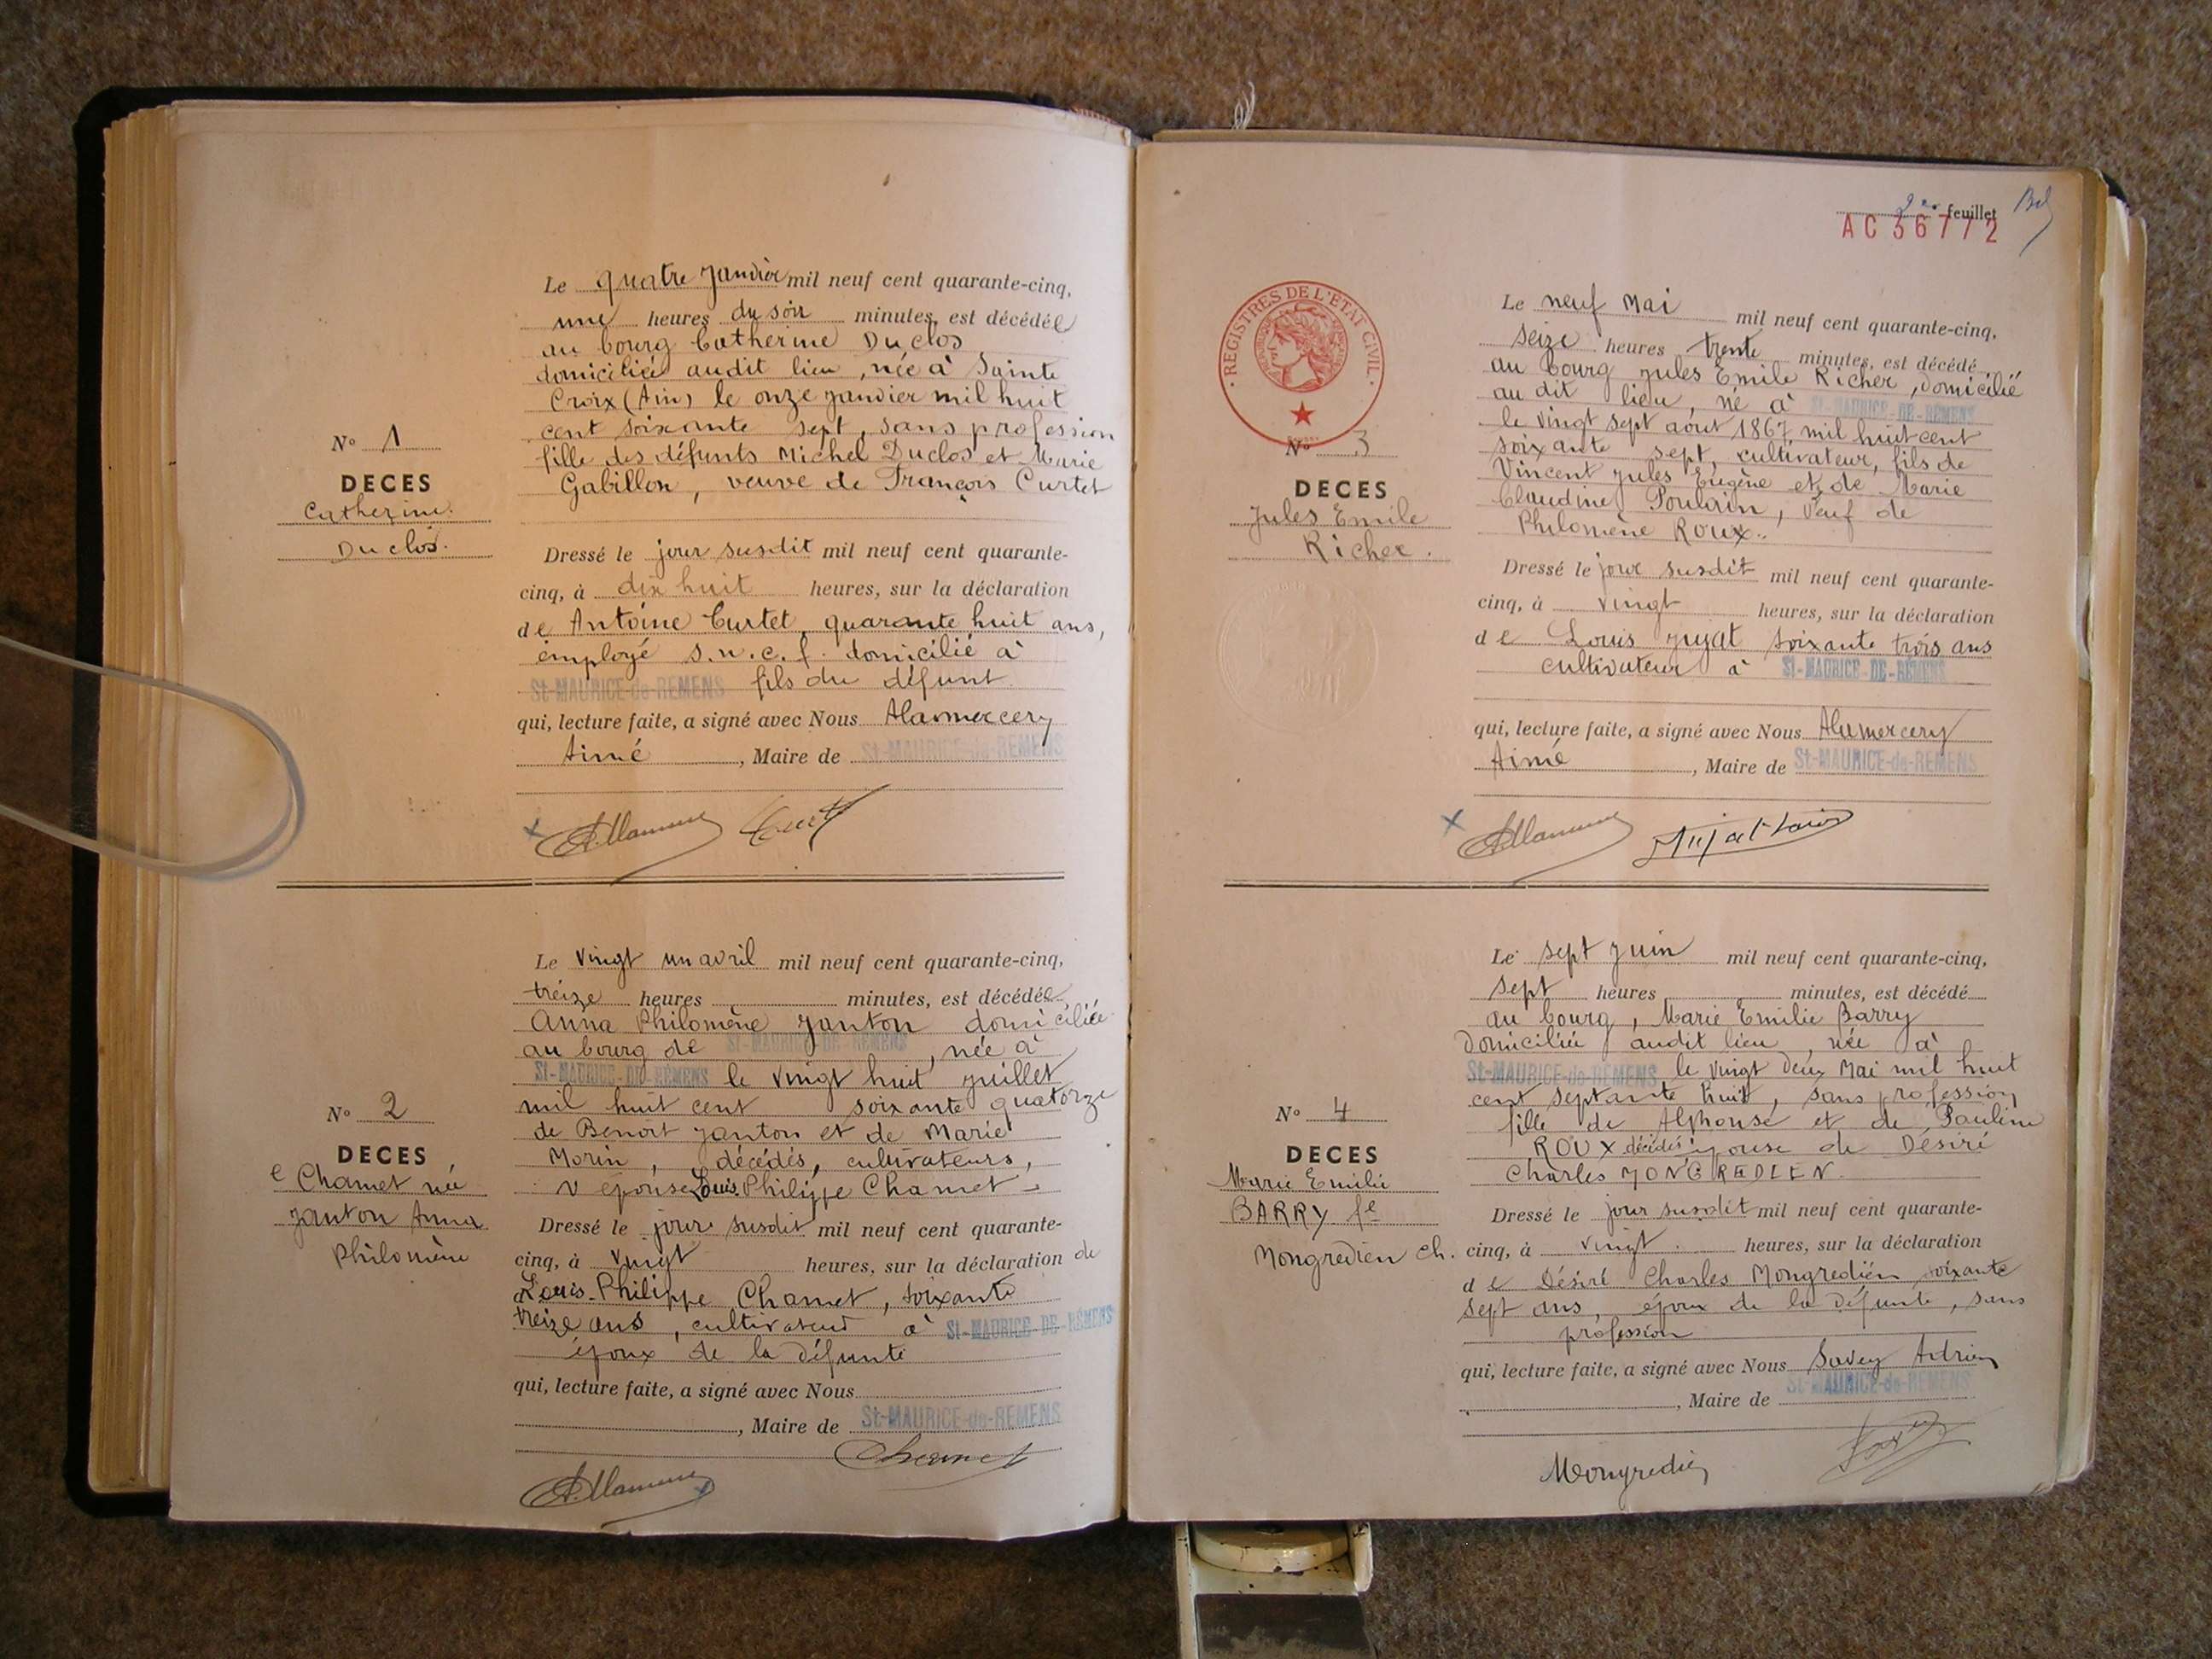 Le quatre Janvier mil neuf cent quarante-cinq,
une heures du soir minutes, est décédée
au bourg Catherine Duclos
domiciliée audit lieu, née à Sainte
Croix (Ain) le onze janvier mil huit
cent soixante sept, sans profession
fille des défunts Michel Duclos et Marie
Gabillon, veuve de François Curtet
N° 1
DECES
Catherine
Duclos.
Dressé le jour susdit mil neuf cent quarante-
cinq, à dix huit heures, sur la déclaration
de Antoine Curtet, quarante huit ans,
employé s.n.c.f. domicilié à
St-MAURICE-de-REMENS fils du défunt
qui, lecture faite, a signé avec Nous Alamercery
Aimé, Maire de St-MAURICE-de-REMENS
Le vingt un avril mil neuf cent quarante-cinq,
treize heures minutes, est décédée
Anna Philomène Janton domiciliée
au bourg de St-MAURICE-DE-RÉMENS, née à
St-MAURICE-DE-RÉMENS le vingt huit juillet
mil huit cent soixante quatorze
de Benoît Janton et de Marie
Morin, décédés, cultivateurs,
épouse Louis Philippe Chamet
N° 2
DECES
e Chamet née
Janton Anna
Philomène
Dressé le jour susdit mil neuf cent quarante-
cinq, à vingt heures, sur la déclaration de
Louis-Philippe Chamet, soixante
treize ans, cultivateur à St-MAURICE-DE-RÉMENS
époux de la défunte
qui, lecture faite, a signé avec Nous
, Maire de St-MAURICE-de-REMENS
Chamet
2e feuillet
AC 36772
REGISTRES DE L'ETAT CIVIL
Le neuf Mai mil neuf cent quarante-cinq,
seize heures trente minutes, est décédé
au bourg Jules Emile Richer, domicilié
au dit lieu, né à St-MAURICE-DE-RÉMENS
le vingt sept août 1867, mil huit cent
soixante sept, cultivateur, fils de
Vincent Jules Eugène et de Marie
Claudine Poulain, veuf de
Philomène Roux.
N° 3
DECES
Jules Emile
Richer.
Dressé le jour susdit mil neuf cent quarante-
cinq, à vingt heures, sur la déclaration
de Louis Jujat soixante trois ans
cultivateur à St-MAURICE-DE-RÉMENS
qui, lecture faite, a signé avec Nous Alamercery
Aimé, Maire de St-MAURICE-de-REMENS
Jujat Louis
Le sept Juin mil neuf cent quarante-cinq,
sept heures minutes, est décédé
au bourg, Marie Emilie Barry
domiciliée audit lieu, née à
St-MAURICE-de-REMENS le vingt deux Mai mil huit
cent septante huit, sans profession
fille de Alphonse et de Pauline
ROUX décédés épouse de Désiré
Charles MONGREDIEN.
N° 4
DECES
Marie Emilie
BARRY fe
Mongredien Ch.
Dressé le jour susdit mil neuf cent quarante-
cinq, à vingt heures, sur la déclaration
de Désiré Charles Mongredien, soixante
sept ans, époux de la défunte, sans
profession
qui, lecture faite, a signé avec Nous Savey Adrien
, Maire de St-MAURICE-de-REMENS
Mongredien